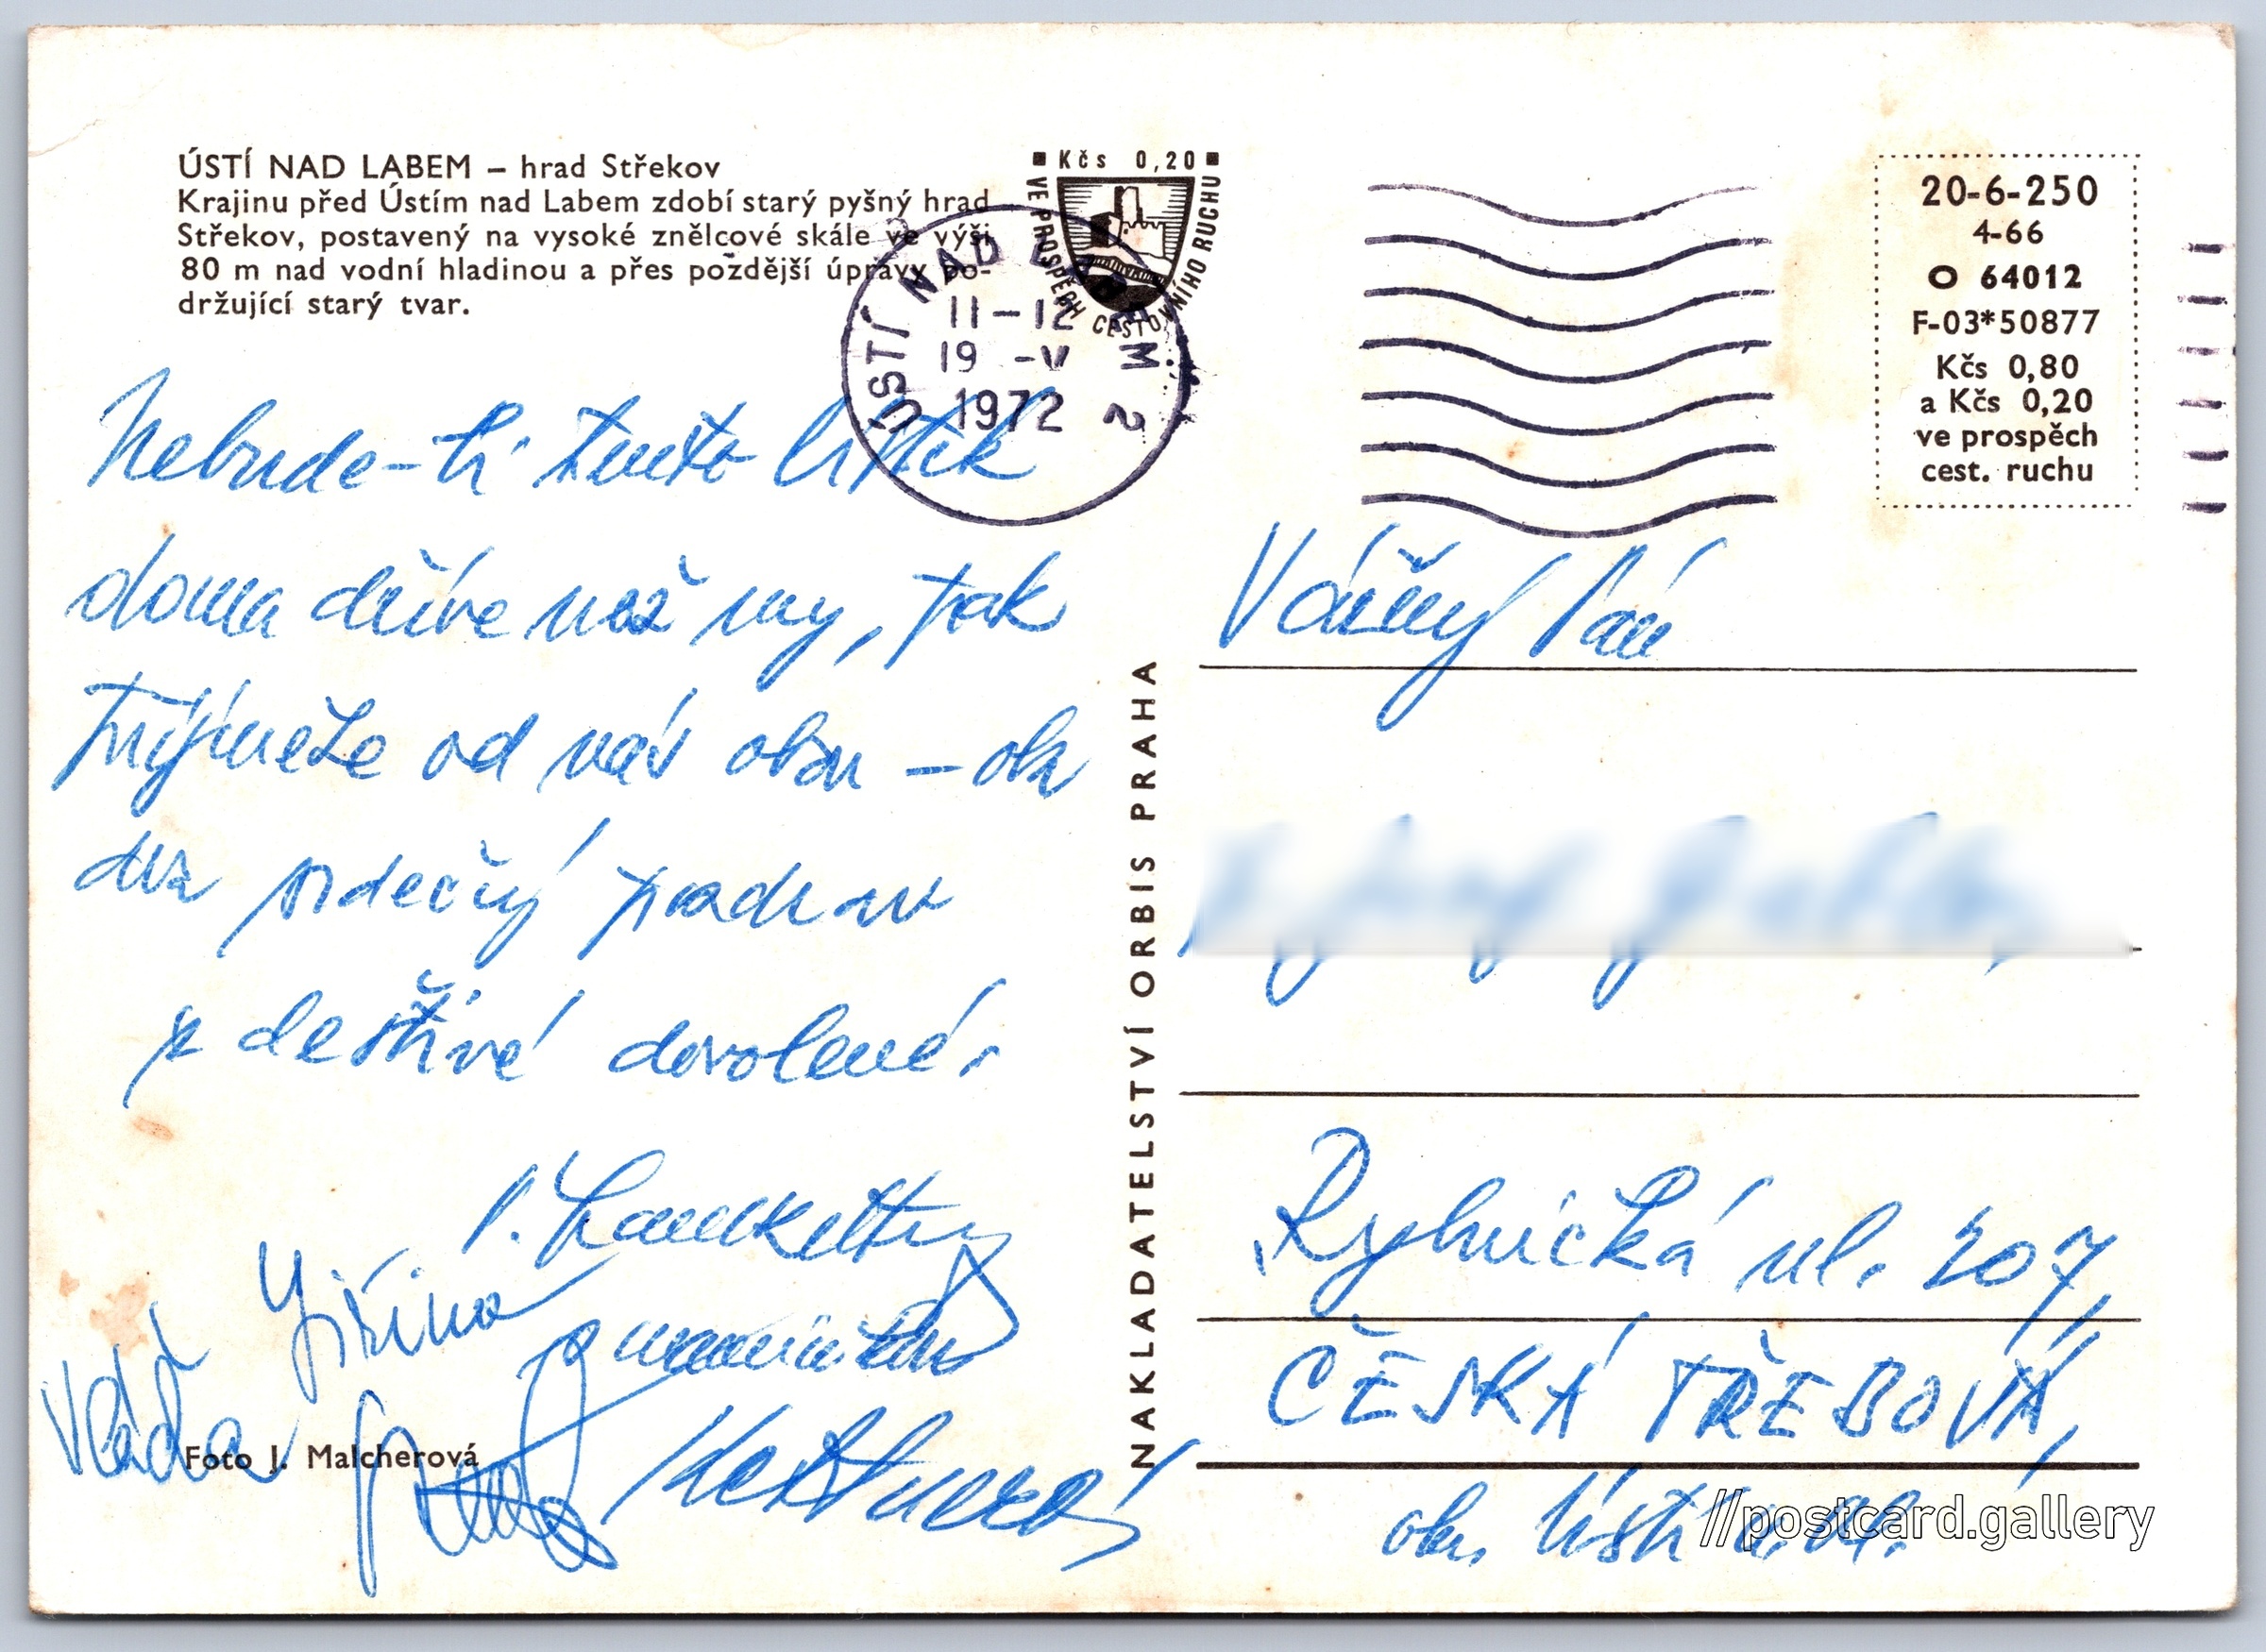 ÚSTÍ NAD LABEM – hrad Střekov
Krajinu před Ústím nad Labem zdobí starý pyšný hrad
Střekov, postavený na vysoké znělcové skále ve výši
80 m nad vodní hladinou a přes pozdější úpravy po-
držující starý tvar.
■ Kčs 0,20 ■
VE PROSPĚCH CESTOVNÍHO RUCHU
ÚSTÍ NAD LABEM 2
11–12
19 -V
1972
20-6-250
4-66
O 64012
F-03*50877
Kčs 0,80
a Kčs 0,20
ve prospěch
cest. ruchu
Nebude-li tento lístek
doma dříve než my, tak
přijměte od nás obou –
srdečný pozdrav
z deštivé dovolené.
Jiřina
Vláďa
Foto J. Malcherová
NAKLADATELSTVÍ ORBIS PRAHA
Vážený Pán
Rybnická ul. 207
ČESKÁ TŘEBOVÁ,
okr. Ústí n. Orl.
//postcard.gallery